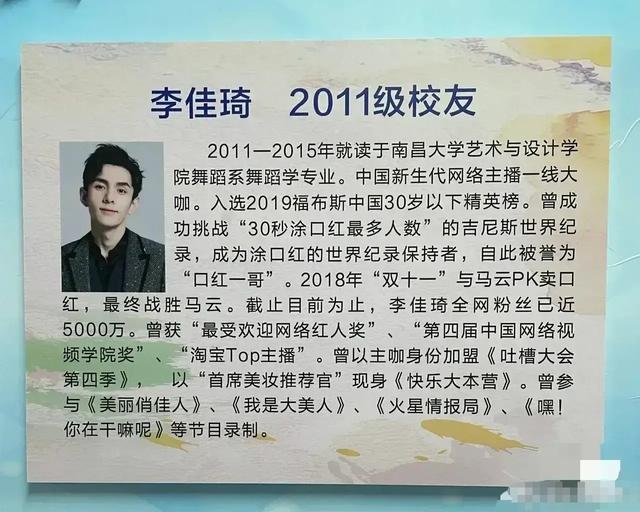 李佳琦 2011级校友
2011—2015年就读于南昌大学艺术与设计学
院舞蹈系舞蹈学专业。中国新生代网络主播一线大
咖。入选2019福布斯中国30岁以下精英榜。曾成
功挑战“30秒涂口红最多人数”的吉尼斯世界纪
录，成为涂口红的世界纪录保持者，自此被誉为
“口红一哥”。2018年“双十一”与马云PK卖口
红，最终战胜马云。截止目前为止，李佳琦全网粉丝已近
5000万。曾获“最受欢迎网络红人奖”、“第四届中国网络视
频学院奖”、“淘宝Top主播”。曾以主咖身份加盟《吐槽大会
第四季》，以“首席美妆推荐官”现身《快乐大本营》。曾参
与《美丽俏佳人》、《我是大美人》、《火星情报局》、《嘿！
你在干嘛呢》等节目录制。